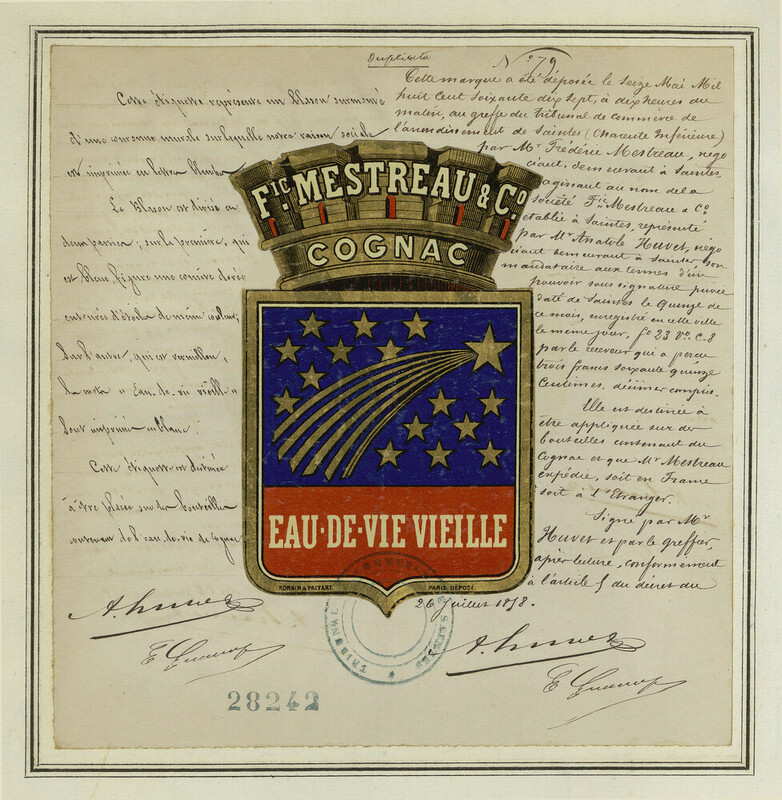 Duplicata
N° 79
Cette étiquette représente un blason surmonté
d'une couronne murale sur laquelle notre raison sociale
est imprimée en lettres blanches
Le Blason est divisé en
deux parties ; sur la première, qui
est bleue, figure une comète dorée
entourée d'étoiles de même couleur;
Sur l'autre, qui est vermillon,
les mots "Eau-de-vie vieille"
sont imprimés en blanc.
Cette étiquette est destinée
à être placée sur des bouteilles
contenant de l'eau-de-vie de Cognac
Cette marque a été déposée le Seize Mai Mil
huit Cent soixante dix sept, à dix heures du
matin, au greffe du tribunal de commerce de
l'arrondissement de Saintes (Charente Inférieure)
par Mr Frédéric Mestreau, négo
ciant, demeurant à Saintes,
agissant au nom de la
société Fic Mestreau & Co
établie à Saintes, représenté
par Mr Anatole Huvet, négo
ciant demeurant à Saintes son
mandataire aux termes d'un
pouvoir sous signature privée
daté de Saintes le Quinze de
ce mois, enregistré en cette ville
le même jour, fo 23 Vo C. 8
par le receveur qui a perçu
trois francs soixante quinze
Centimes, décimes compris.
Elle est destinée à
être appliquée sur des
bouteilles contenant du
Cognac et que Mr Mestreau
expédie, soit en France
soit à l'Etranger.
Signé par Mr
Huvet et par le greffier,
après lecture, conformément
à l'article 5 du décret du
26 Juillet 1858.
FIC. MESTREAU & CO.
COGNAC
EAU·DE·VIE VIEILLE
ROMAIN & PALYART. PARIS. DÉPOSÉ
A. Huvet
A. Huvet
TRIBUNAL DE COMMERCE SAINTES
28242